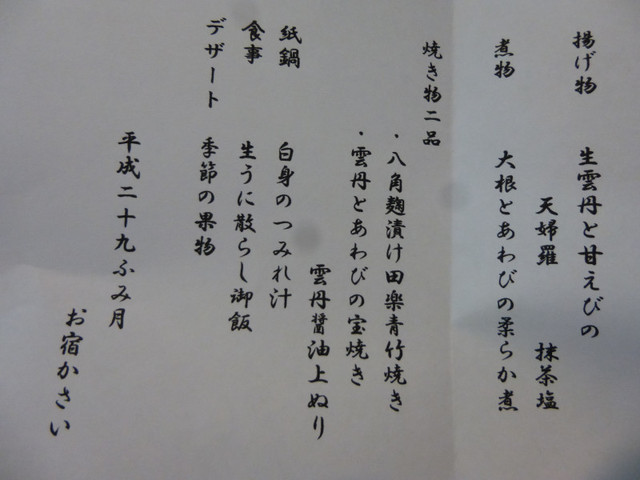 揚げ物 生雲丹と甘えびの
天婦羅 抹茶塩
煮物 大根とあわびの柔らか煮
焼き物二品
・八角麹漬け田楽青竹焼き
・雲丹とあわびの宝焼き
雲丹醤油上ぬり
紙鍋 白身のつみれ汁
食事 生うに散らし御飯
デザート 季節の果物
平成二十九ふみ月
お宿かさい